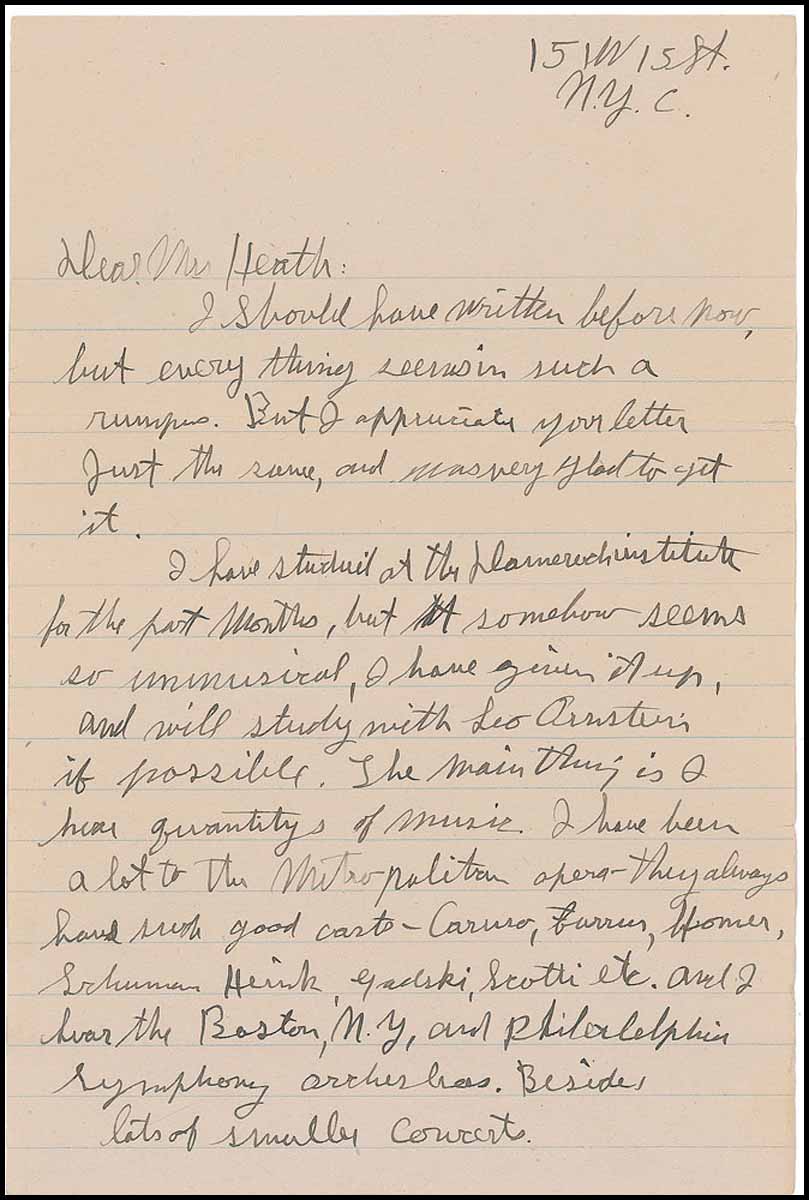 151 W 15 St.
N.Y.C.
Dear Mrs Heath:
I should have written before now,
but every thing seems in such a
rumpus. But I appreciate your letter
just the same, and was very glad to get
it.
I have studied at the Damrosch institute
for the past months, but it somehow seems
so unmusical, I have given it up,
and will study with Leo Ornstein
if possible. The main thing is I
hear quantitys of music. I have been
a lot to the Metropolitan opera - they always
have such good casts - Caruso, Farrar, Homer,
Schuman Heink, Gadski, Scotti etc. and I
hear the Boston, N.Y, and Philerlelphia
Symphony orchestras. Besides
lots of smaller concerts.